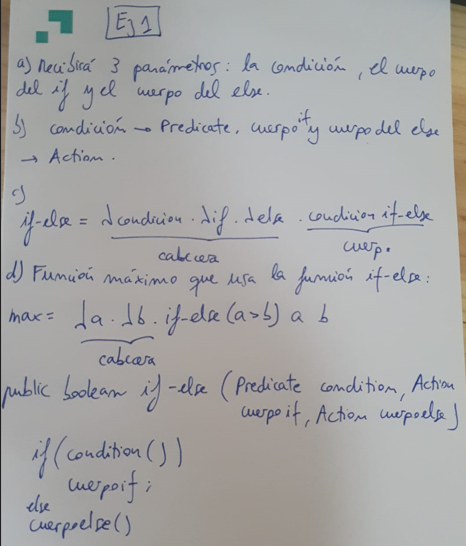 Ej 1
a) Recibirá 3 parámetros: la condición, el cuerpo
del if y el cuerpo del else.
b) condición → Predicate, cuerpo if y cuerpo del else
→ Action.
c)
if-else = λcondicion . λif . λelse . condicion if-else
cabcera cuerp.
d) Función máximo que usa la función if-else:
max = λa . λb . if-else (a>b) a b
cabcera
public boolean if-else (Predicate condition, Action
cuerpoif, Action cuerpoelse)
if (condition())
cuerpoif;
else
cuerpoelse()